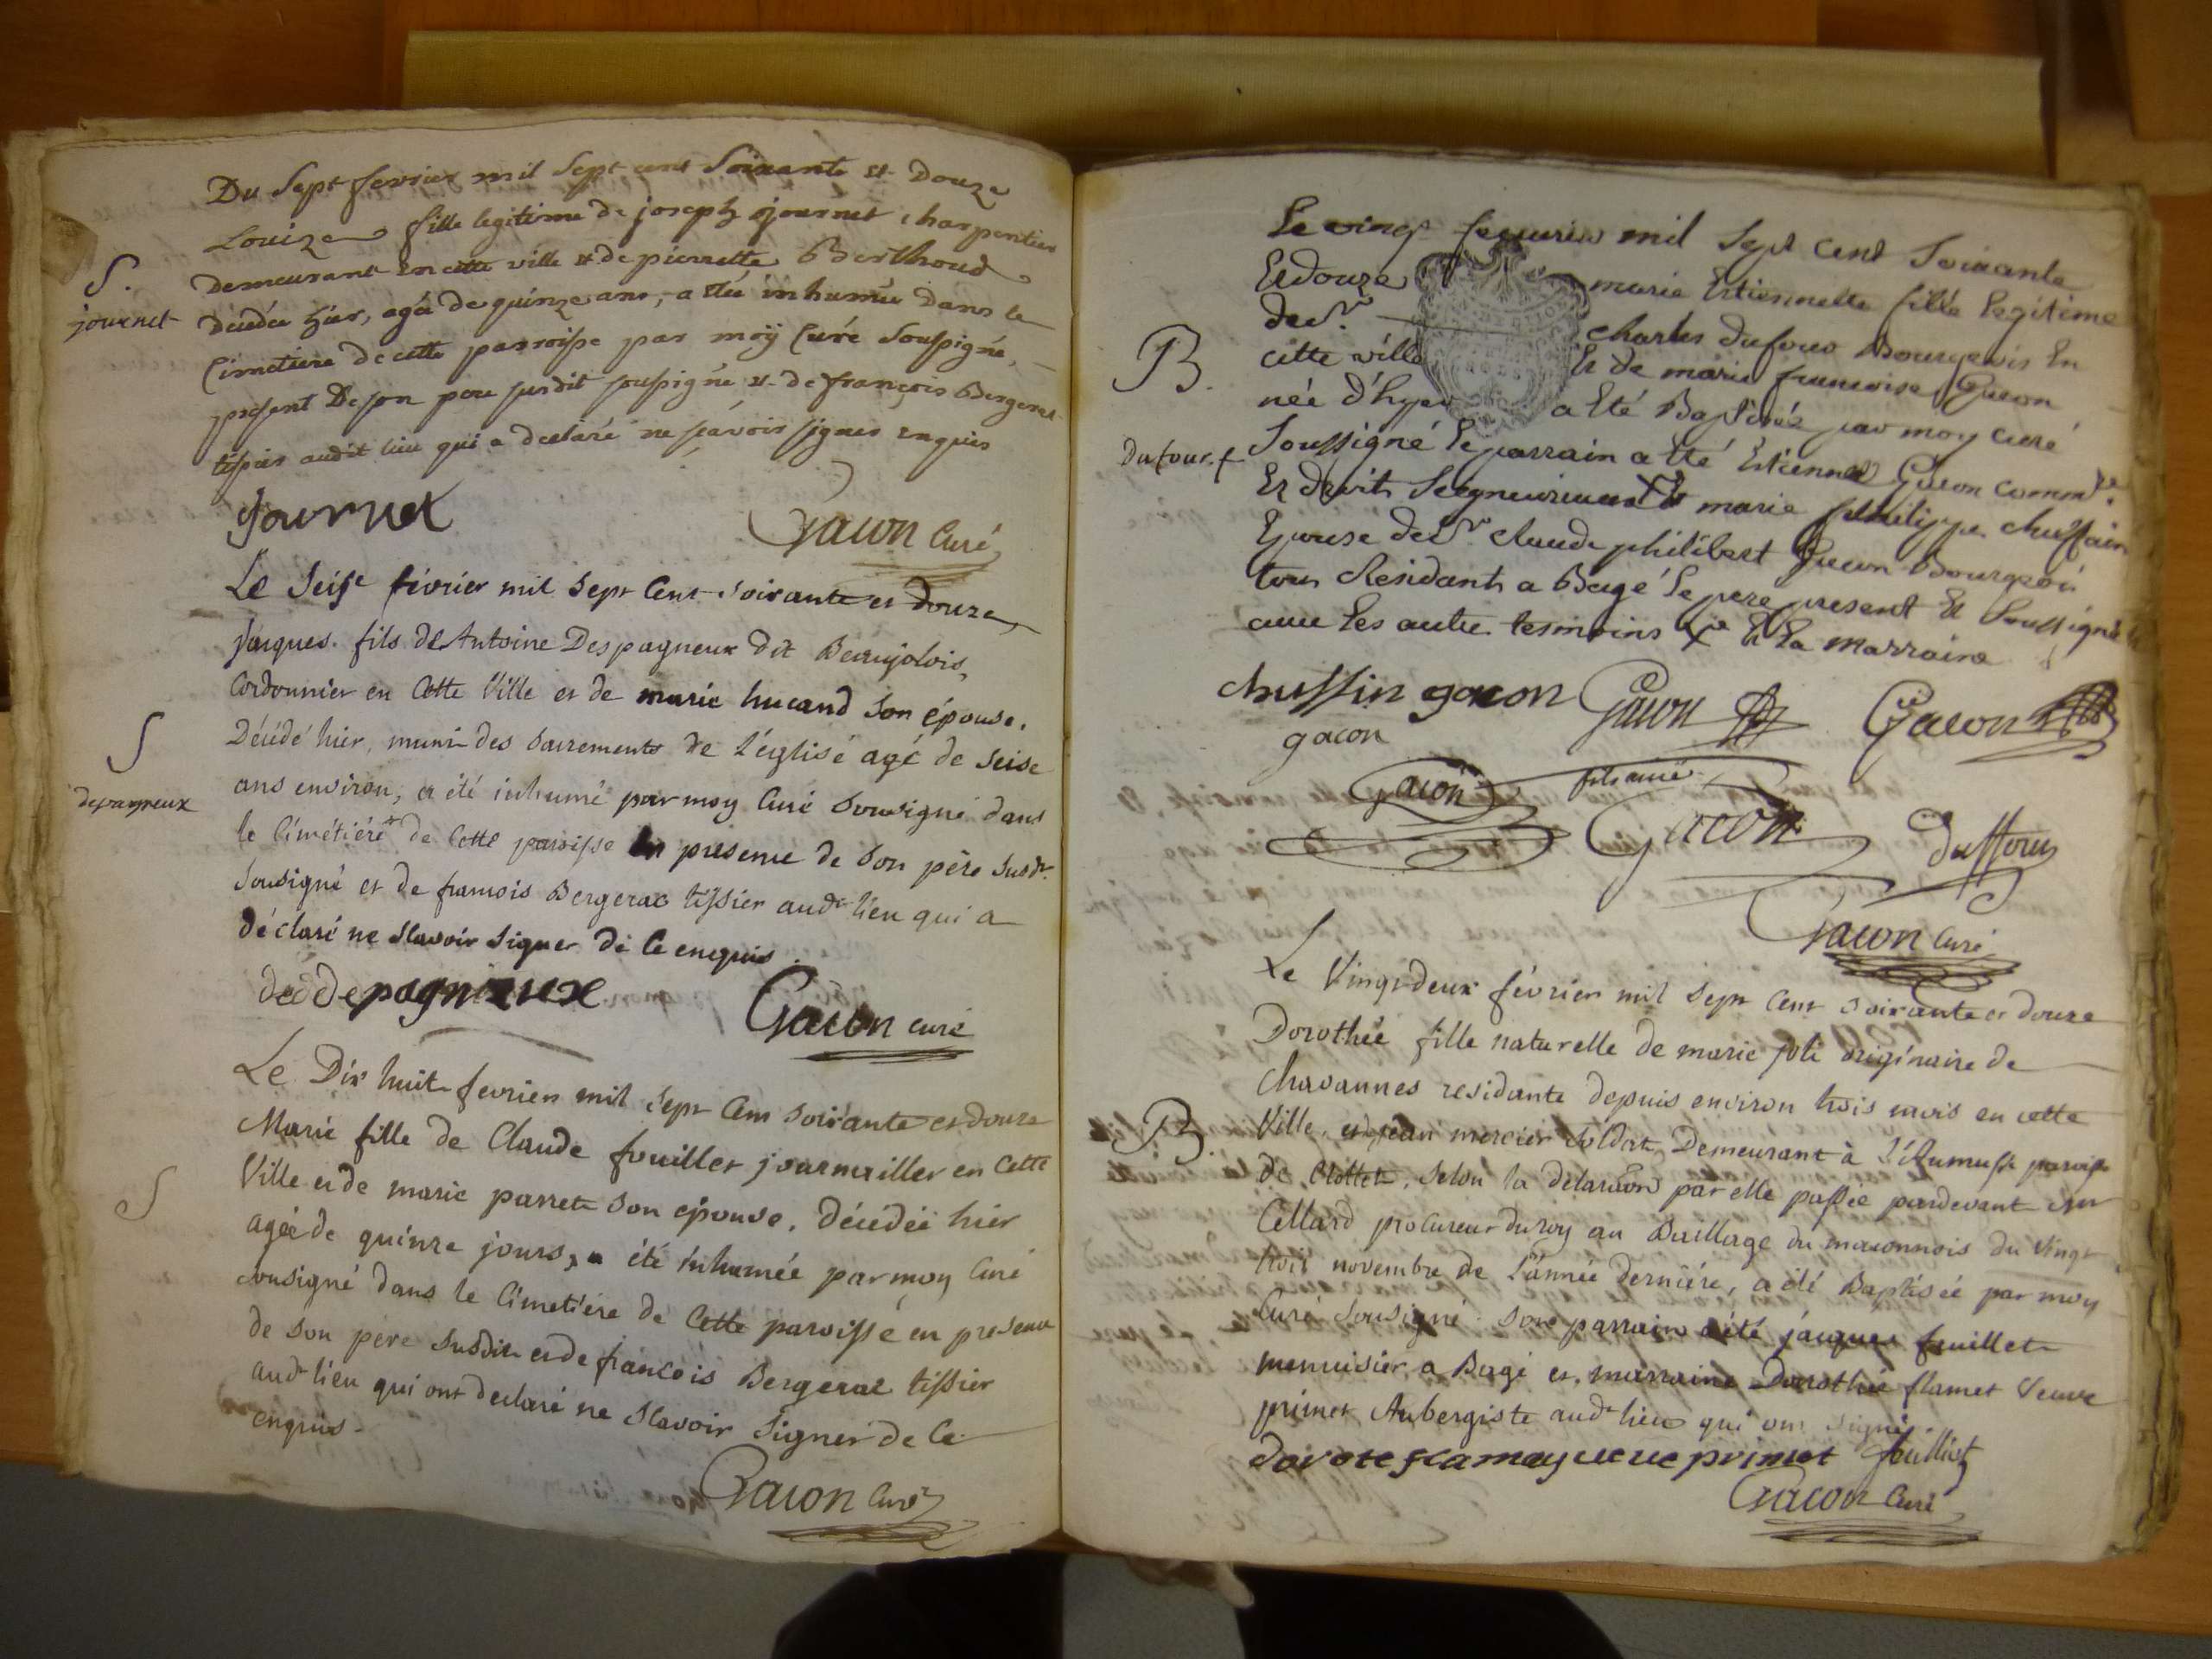 Du Sept fevrier mil Sept cent Soixante et Douze
Louize fille legitime de joseph journet charpentier
demeurant en cette ville et de pierrette Berthoud
S.
journet
décedée hier, agéa de quinze ans, a étée inhumée dans le
Cimetiere de cette parroisse par moÿ Curé Soussigné,
present De son pere susdit soussigné et de françois Bergerat
tissier audit lieu qui a declaré ne sçavoir signer enquis
journet
Gacon Curé
Le Seise février mil Sept Cent soixante et douze
Jacques fils de Antoine Despagneux dit Beaujolois,
Cordonnier en Cette Ville et de marie hucand Son épouse.
S
depagneux
Décédé hier, muni des Sacrements de L'église agé de Seise
ans environ, a été inhumé par moy Curé Sousigné dans
le Cimétiére de Cette paroisse en presence de Son père Susdt.
Sousigné et de francois Bergerac tissier audt lieu qui a
déclaré ne Scavoir Signer de Ce enquis.
depagnieux
Gacon curé
Le Dix huit fevrier mil Sept Cent soixante et douze
Marie fille de Claude fouillet journaillier en Cette
Ville et de marie parret Son epouse, décédée hier
S
agée de quinze jours, a été inhumée par moy Curé
sousigné dans le Cimetiére de Cette paroisse en presence
de Son pere Susdit et de francois Bergerat tissier
audt lieu qui ont declaré ne Scavoir Signer de Ce
enquis.
Gacon Curé
Le vingt feuvrier mil Sept Cent Soixante
Et douze marie Estiennette fille Legitime
de Sr. Charles dufour Bourgeois En
B.
cette ville Et de marie francoise Gacon
née d'hyer a Eté Baptisée par moy curé
dufour. f
Soussigné Le parrain a Eté Estienne Gacon commre.
Et droits Seigneuriaux Et marie philippe chuffin
Epouse de Sr claude philibert Gacon Bourgeois
tous Residants a Bagé Le pere present Et Soussigné
avec Les autre temoins Et La marraine
chuffin gacon Gacon Gacon
gacon
Gacon fils ainé
Gacon duffour
Gacon Curé
Le Vingt deux février mil Sept Cent soixante et douze
Dorothée fille naturelle de marie joli originaire de
Chavannes residante depuis environ trois mois en cette
B.
Ville, et de jean mercier Soldat, Demeurant à L'Aumusse paroisse
de Crottet, Selon la declaraõn par elle passée pardevant Mr
Cellard procureur du roy au Baillage du maconnois du Vingt
trois novembre de L'année derniére, a été Baptisée par moy
Curé sousigné. Son parrain a été jacques feuillet
menuisier a Bagé et marraine Dorothée flamet Veuve
primet Aubergiste audt lieu qui ont signé
dorote flamay veuve primet feuilliet
Gacon Curé